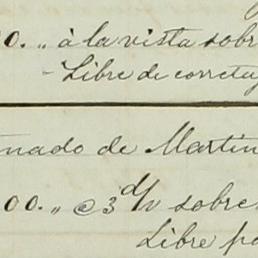 0. „ à la vista sobr
- Libre de corretaj
mado de Martin
00. „ @ 3 d/v sobre
Libre po